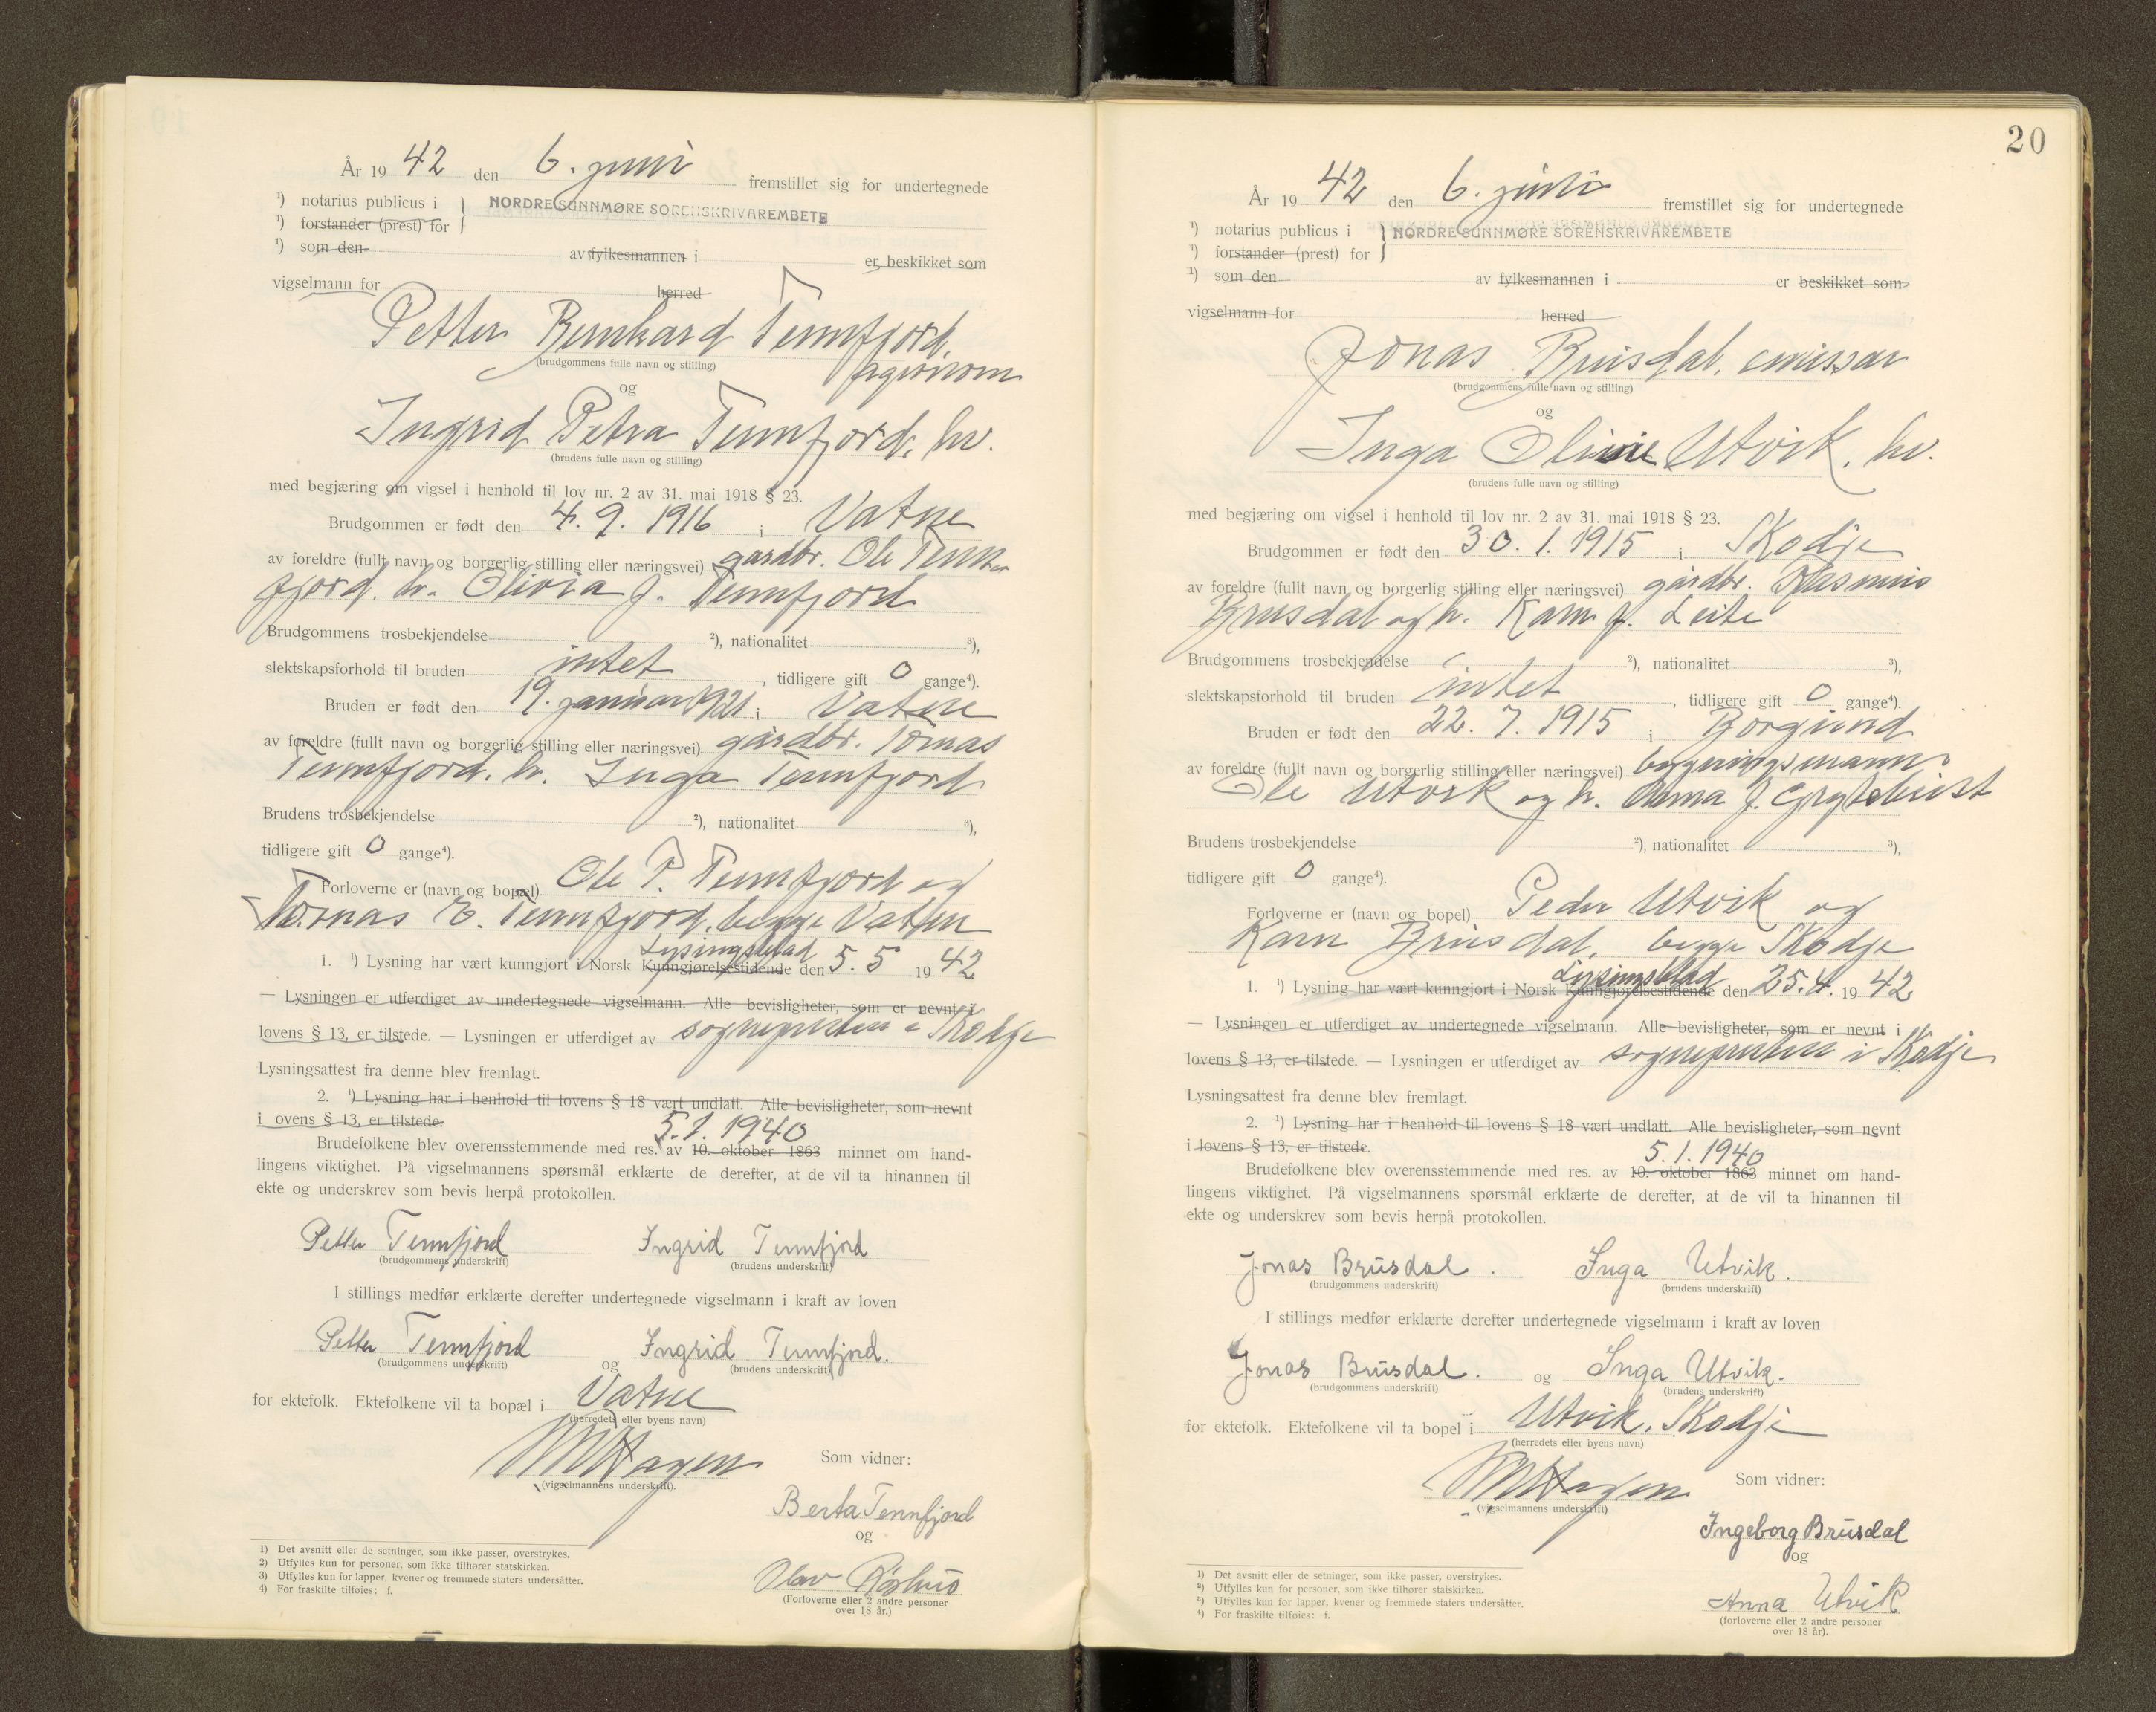 År 1942 den 6. juni fremstillet sig for undertegnede
¹) notarius publicus i NORDRE SUNNMØRE SORENSKRIVAREMBETE
¹) forstander (prest) for
¹) som den av fylkesmannen i er beskikket som
vigselmann for herred
Petter Bernhard Tennfjord,
(brudgommens fulle navn og stilling)
agronom
og
Ingrid Petra Tennfjord, hv.
(brudens fulle navn og stilling)
med begjæring om vigsel i henhold til lov nr. 2 av 31. mai 1918 § 23.
Brudgommen er født den 4. 9. 1916 i Vatne
av foreldre (fullt navn og borgerlig stilling eller næringsvei) gårdbr. Ole Tenn-
fjord. h. Olivia J. Tennfjord
Brudgommens trosbekjendelse ²), nationalitet ³),
slektskapsforhold til bruden intet, tidligere gift 0 gange⁴).
Bruden er født den 19. januar 1921 i Vatne
av foreldre (fullt navn og borgerlig stilling eller næringsvei) gårdbr. Tomas
Tennfjord. h. Inga Tennfjord
Brudens trosbekjendelse ²), nationalitet ³),
tidligere gift 0 gange⁴).
Forloverne er (navn og bopæl) Ole P. Tennfjord og
Tomas E. Tennfjord, begge Vatne
Lysingsblad
1. ¹) Lysning har vært kunngjort i Norsk Kunngjørelsestidende den 5. 5 1942
— Lysningen er utferdiget av undertegnede vigselmann. Alle bevisligheter, som er nevnt i
lovens § 13, er tilstede. — Lysningen er utferdiget av sognepresten i Skodje
Lysningsattest fra denne blev fremlagt.
2. ¹) Lysning har i henhold til lovens § 18 vært undlatt. Alle bevisligheter, som nevnt
i ovens § 13, er tilstede.
5.1.1940
Brudefolkene blev overensstemmende med res. av 10. oktober 1863 minnet om hand-
lingens viktighet. På vigselmannens spørsmål erklærte de derefter, at de vil ta hinannen til
ekte og underskrev som bevis herpå protokollen.
Petter Tennfjord Ingrid Tennfjord
(brudgommens underskrift) (brudens underskrift)
I stillings medfør erklærte derefter undertegnede vigselmann i kraft av loven
Petter Tennfjord og Ingrid Tennfjord.
(brudgommens underskrift) (brudens underskrift)
for ektefolk. Ektefolkene vil ta bopæl i Vatne
(herredets eller byens navn)
Hagen
Som vidner:
(vigselmannens underskrift).
Berta Tennfjord
og
Olav
(Forloverne eller 2 andre personer
over 18 år.)
1) Det avsnitt eller de setninger, som ikke passer, overstrykes.
2) Utfylles kun for personer, som ikke tilhører statskirken.
3) Utfylles kun for lapper, kvener og fremmede staters undersåtter.
4) For fraskilte tilføies: f.
20
År 1942 den 6. juni fremstillet sig for undertegnede
¹) notarius publicus i NORDRE SUNNMØRE SORENSKRIVAREMBETE
¹) forstander (prest) for
¹) som den av fylkesmannen i er beskikket som
vigselmann for herred
Jonas Brusdal, emissær
(brudgommens fulle navn og stilling)
og
Inga Oline Utvik, hv.
(brudens fulle navn og stilling)
med begjæring om vigsel i henhold til lov nr. 2 av 31. mai 1918 § 23.
Brudgommen er født den 30. 1. 1915 i Skodje
av foreldre (fullt navn og borgerlig stilling eller næringsvei) gårdbr. Rasmus
Brusdal og h. Karn J. Leite
Brudgommens trosbekjendelse ²), nationalitet ³),
slektskapsforhold til bruden intet, tidligere gift 0 gange⁴).
Bruden er født den 22. 7. 1915 i Borgund
av foreldre (fullt navn og borgerlig stilling eller næringsvei) bygningsmann
Ole Utvik og h. Anna J.
Brudens trosbekjendelse ²), nationalitet ³),
tidligere gift 0 gange⁴).
Forloverne er (navn og bopel) Peder Utvik og
Karn Brusdal, begge Skodje
Lysingsblad
1. ¹) Lysning har vært kunngjort i Norsk Kunngjørelsestidende den 25. 4. 1942
— Lysningen er utferdiget av undertegnede vigselmann. Alle bevisligheter, som er nevnt i
lovens § 13, er tilstede. — Lysningen er utferdiget av sognepresten i Skodje
Lysningsattest fra denne blev fremlagt.
2. ¹) Lysning har i henhold til lovens § 18 vært undlatt. Alle bevisligheter, som nevnt
i lovens § 13, er tilstede.
5.1.1940
Brudefolkene blev overensstemmende med res. av 10. oktober 1863 minnet om hand-
lingens viktighet. På vigselmannens spørsmål erklærte de derefter, at de vil ta hinannen til
ekte og underskrev som bevis herpå protokollen.
Jonas Brusdal. Inga Utvik.
(brudgommens underskrift) (brudens underskrift)
I stillings medfør erklærte derefter undertegnede vigselmann i kraft av loven
Jonas Brusdal. og Inga Utvik.
(brudgommens underskrift) (brudens underskrift)
for ektefolk. Ektefolkene vil ta bopel i Utvik, Skodje
(herredets eller byens navn)
Hagen
Som vidner:
(vigselmannens underskrift)
Ingeborg Brusdal
og
Anna Utvik
(forloverne eller 2 andre personer
over 18 år).
1) Det avsnitt eller de setninger, som ikke passer, overstrykes.
²) Utfylles kun for personer, som ikke tilhører statskirken.
³) Utfylles kun for lapper, kvener og fremmede staters undersåtter.
⁴) For fraskilte tilføies: f.